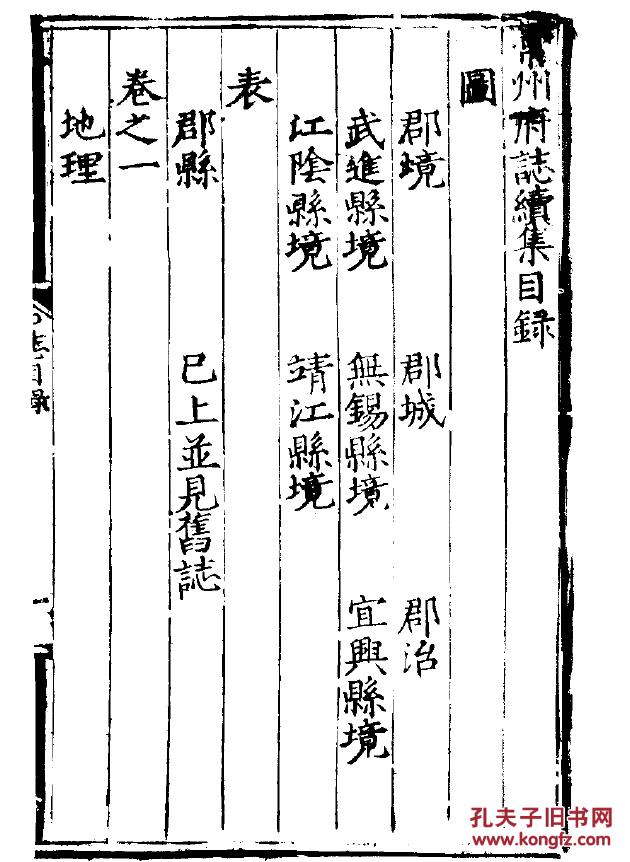 常州府誌續集目録
圖
郡境 郡城 郡治
武進縣境 無錫縣境 宜興縣境
江陰縣境 靖江縣境
表
郡縣 已上並見舊誌
卷之一
地理
志目録
一
孔夫子旧书网
www.kongfz.com